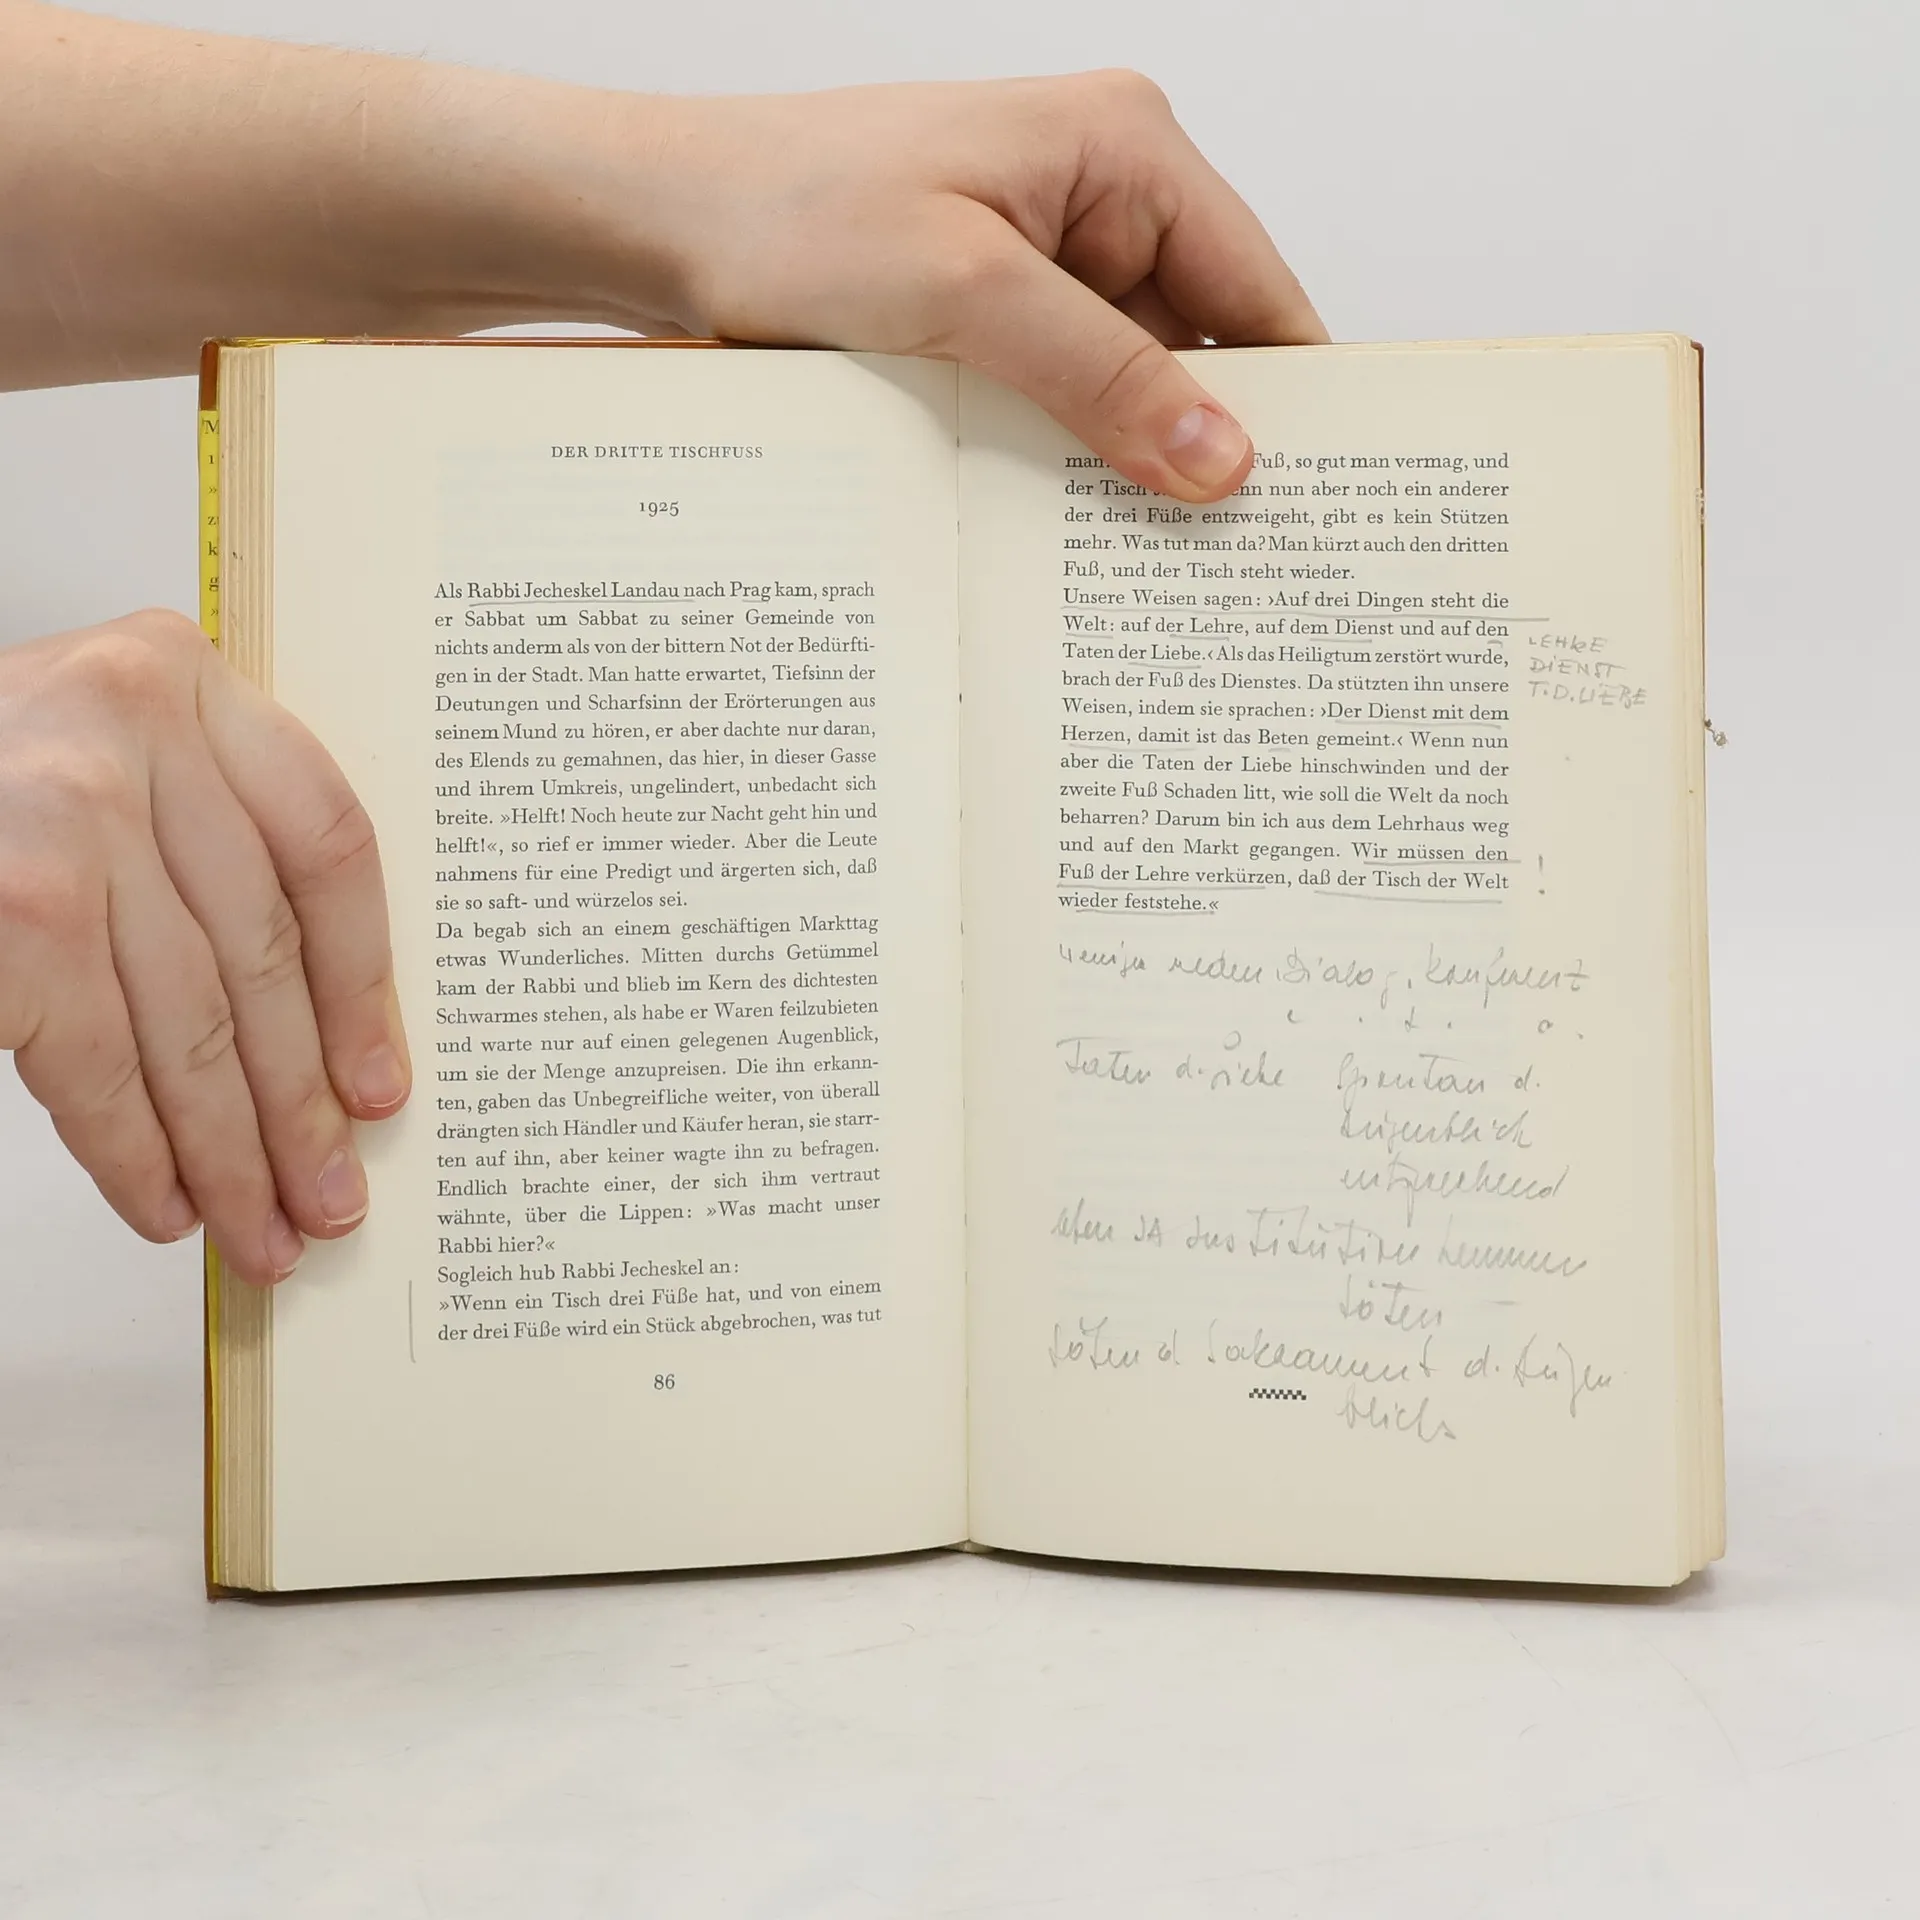 DER DRITTE TISCHFUSS
1925
Als Rabbi Jecheskel Landau nach Prag kam, sprach
er Sabbat um Sabbat zu seiner Gemeinde von
nichts anderm als von der bittern Not der Bedürfti-
gen in der Stadt. Man hatte erwartet, Tiefsinn der
Deutungen und Scharfsinn der Erörterungen aus
seinem Mund zu hören, er aber dachte nur daran,
des Elends zu gemahnen, das hier, in dieser Gasse
und ihrem Umkreis, ungelindert, unbedacht sich
breite. »Helft! Noch heute zur Nacht geht hin und
helft!«, so rief er immer wieder. Aber die Leute
nahmens für eine Predigt und ärgerten sich, daß
sie so saft- und würzelos sei.
Da begab sich an einem geschäftigen Markttag
etwas Wunderliches. Mitten durchs Getümmel
kam der Rabbi und blieb im Kern des dichtesten
Schwarmes stehen, als habe er Waren feilzubieten
und warte nur auf einen gelegenen Augenblick,
um sie der Menge anzupreisen. Die ihn erkann-
ten, gaben das Unbegreifliche weiter, von überall
drängten sich Händler und Käufer heran, sie starr-
ten auf ihn, aber keiner wagte ihn zu befragen.
Endlich brachte einer, der sich ihm vertraut
wähnte, über die Lippen: »Was macht unser
Rabbi hier?«
Sogleich hub Rabbi Jecheskel an:
»Wenn ein Tisch drei Füße hat, und von einem
der drei Füße wird ein Stück abgebrochen, was tut
86
man. Fuß, so gut man vermag, und
der Tisch nun aber noch ein anderer
der drei Füße entzweigeht, gibt es kein Stützen
mehr. Was tut man da? Man kürzt auch den dritten
Fuß, und der Tisch steht wieder.
Unsere Weisen sagen: ›Auf drei Dingen steht die
Welt: auf der Lehre, auf dem Dienst und auf den
Taten der Liebe.‹ Als das Heiligtum zerstört wurde,
brach der Fuß des Dienstes. Da stützten ihn unsere
Weisen, indem sie sprachen: ›Der Dienst mit dem
Herzen, damit ist das Beten gemeint.‹ Wenn nun
aber die Taten der Liebe hinschwinden und der
zweite Fuß Schaden litt, wie soll die Welt da noch
beharren? Darum bin ich aus dem Lehrhaus weg
und auf den Markt gegangen. Wir müssen den
Fuß der Lehre verkürzen, daß der Tisch der Welt
wieder feststehe.«
LEHRE
DIENST
T.D.LIEBE
!
weniger reden Dialog, Konferenz
Taten d. Liebe Spontan d.
Augenblick
entsprechend
töten
töten d Sakrament d. Augen
blicks